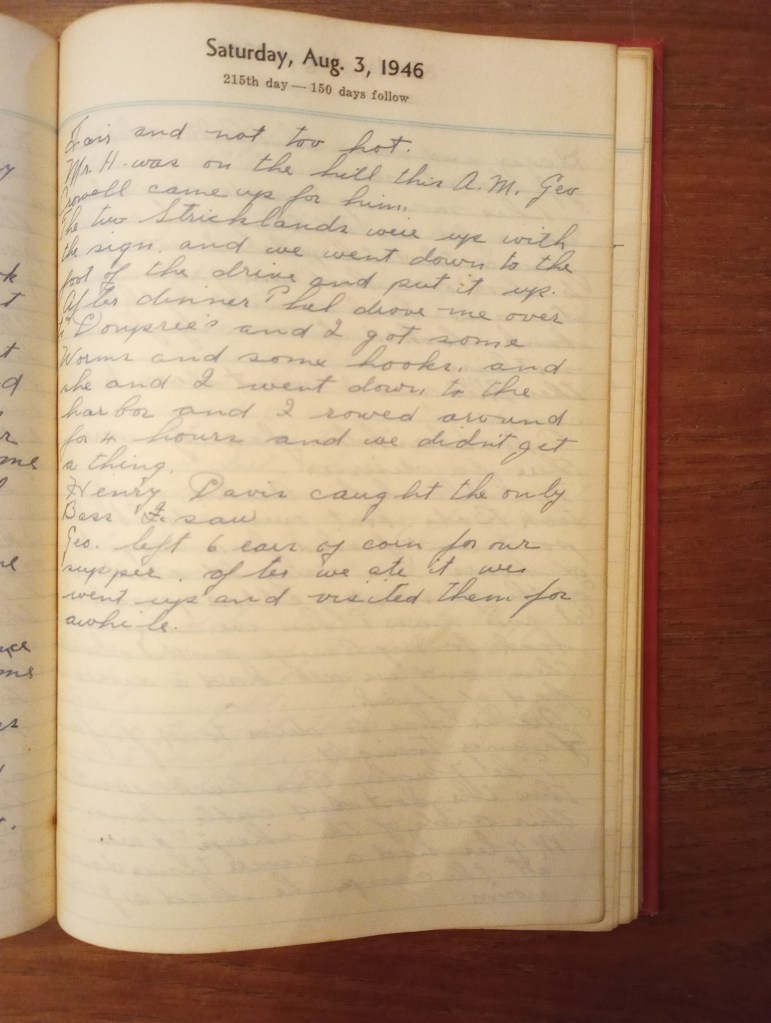 Saturday, Aug. 3, 1946
215th day — 150 days follow
Fair and not too hot.
Mr. H. was on the hill this A.M. Geo
Crowell came up for him.
The two Stricklands were up with
the sign, and we went down to the
foot of the drive and put it up.
After dinner Phel drove me over
to and I got some
Worms and some hooks, and
she and I went down to the
harbor and I rowed around
for 4 hours and we didn't get
a thing.
Henry Davis caught the only
Bass I saw
Geo. left 6 ears of corn for our
supper. after we ate it we
went up and visited them for
awhile.